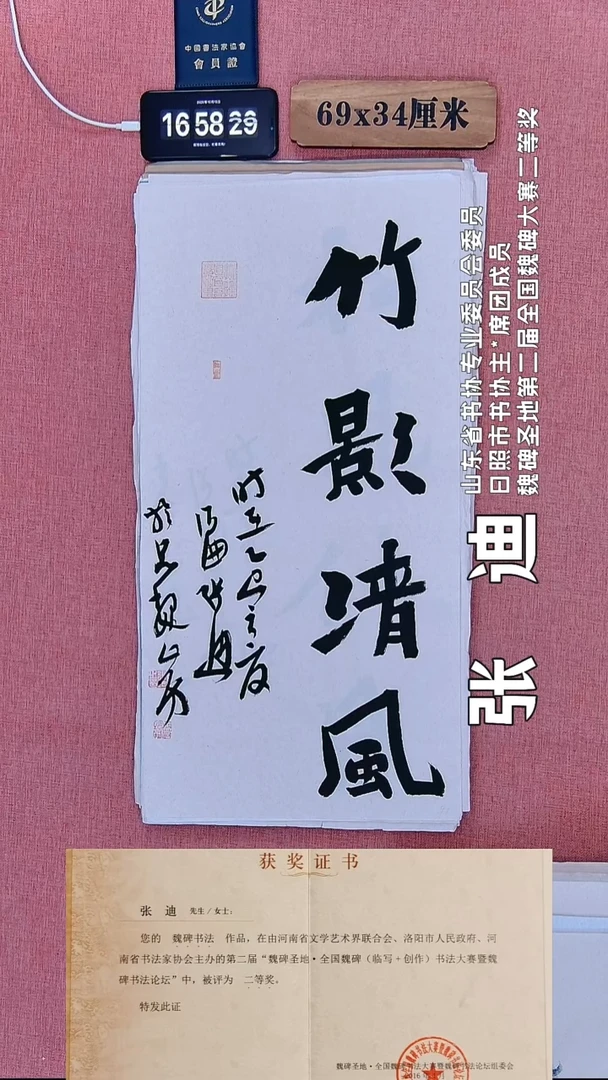 中國書法家協會
會員證
16 58 29
69x34厘米
竹影清風
时在乙巳之夏
山东省书协专业委员会委员
日照市书协主*席团成员
魏碑圣地第二届全国魏碑大赛二等奖
张迪
获奖证书
张 迪 先生/女士：
您的 魏碑书法 作品，在由河南省文学艺术界联合会、洛阳市人民政府、河
南省书法家协会主办的第二届“魏碑圣地·全国魏碑（临写+创作）书法大赛暨魏
碑书法论坛”中，被评为 二等奖。
特发此证
魏碑圣地·全国魏碑书法大赛暨魏碑书法论坛组委会